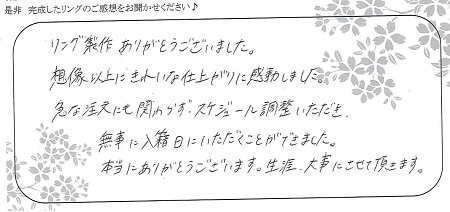 是非 完成したリングのご感想をお聞かせください♪
リング製作 ありがとうございました。
想像以上にきれいな仕上がりに感動しました。
急な注文にも関わらず、スケジュール調整いただき、
無事に入籍日にいただくことができました。
本当にありがとうございます。生涯、大事にさせて頂きます。